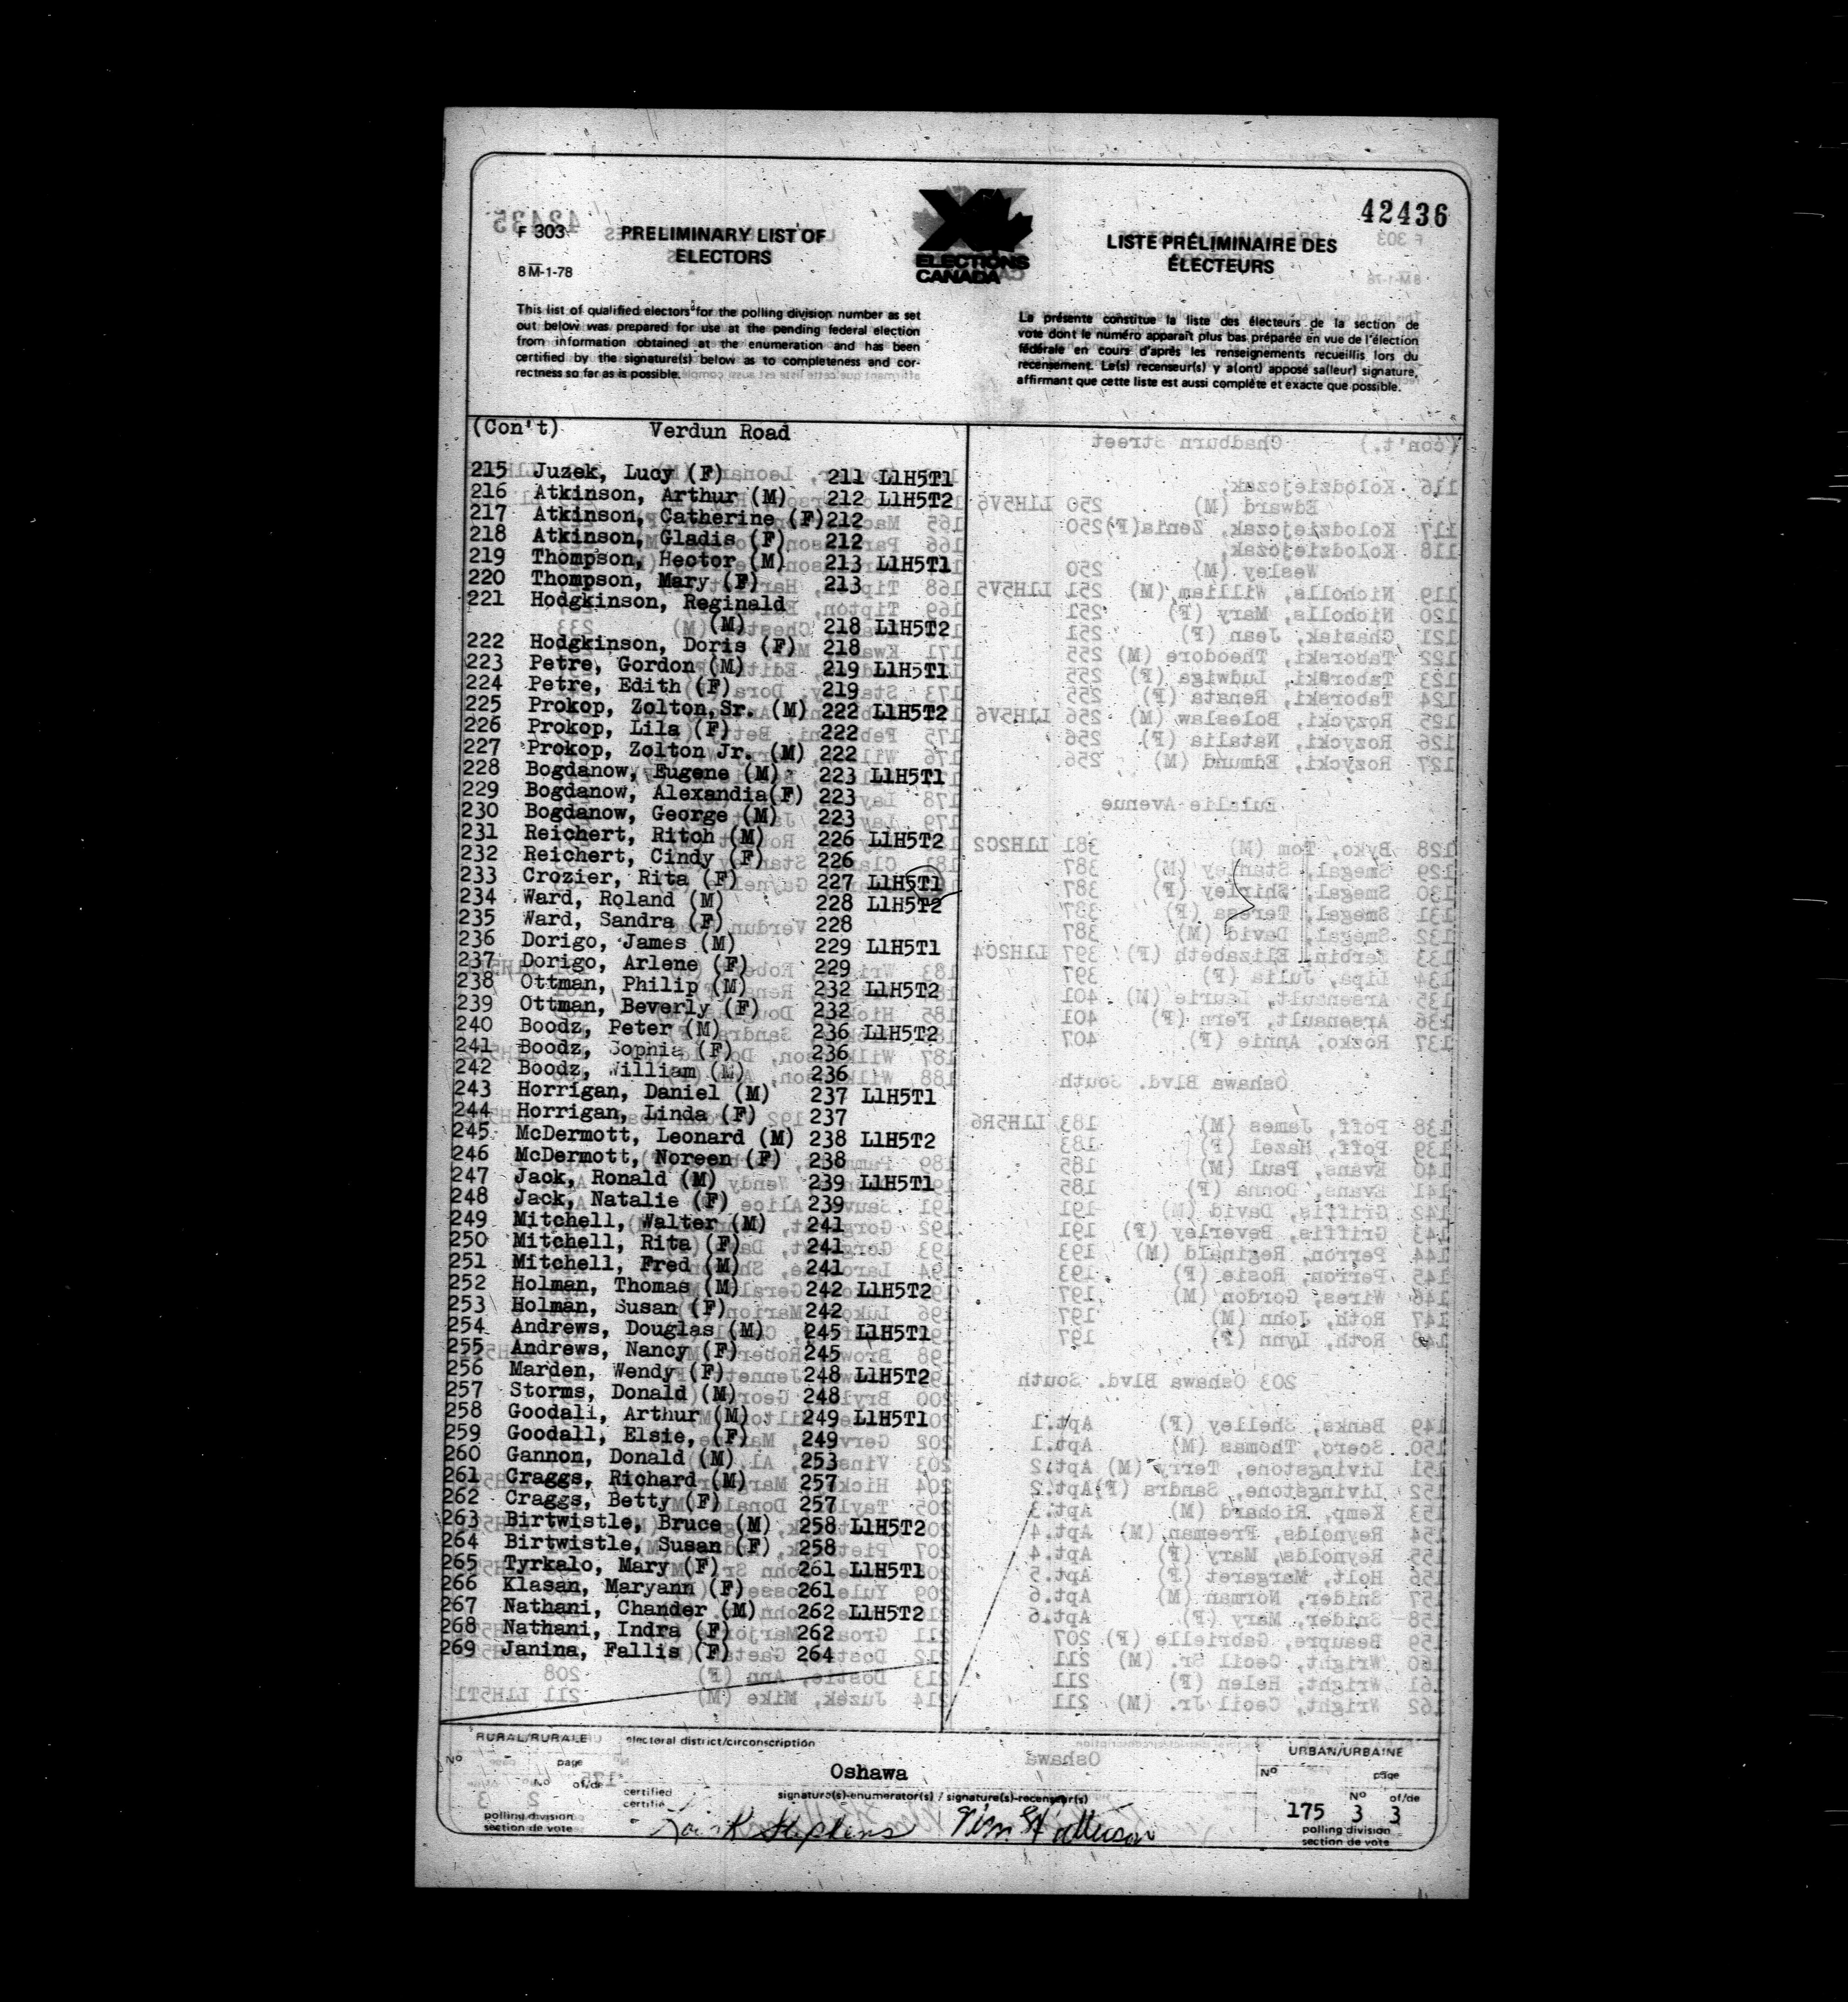 42436
F 303
8 M-1-78
PRELIMINARY LIST OF
ELECTORS
ELECTIONS
CANADA
LISTE PRÉLIMINAIRE DES
ÉLECTEURS
This list of qualified electors for the polling division number as set
out below was prepared for use at the pending federal election
from information obtained at the enumeration and has been
certified by the signature(s) below as to completeness and cor-
rectness so far as is possible.
La présente constitue la liste des électeurs de la section de
vote dont le numéro apparaît plus bas préparée en vue de l'élection
fédérale en cours d'après les renseignements recueillis lors du
recensement. Le(s) recenseur(s) y a(ont) apposé sa(leur) signature,
affirmant que cette liste est aussi complète et exacte que possible.
(Con't) Verdun Road
215 Juzek, Lucy (F) 211 L1H5T1
216 Atkinson, Arthur (M) 212 L1H5T2
217 Atkinson, Catherine (F)212
218 Atkinson, Gladis (F) 212
219 Thompson, Hector (M) 213 L1H5T1
220 Thompson, Mary (F) 213
221 Hodgkinson, Reginald
(M) 218 L1H5T2
222 Hodgkinson, Doris (F) 218
223 Petre, Gordon (M) 219 L1H5T1
224 Petre, Edith (F) 219
225 Prokop, Zolton,Sr. (M) 222 L1H5T2
226 Prokop, Lila (F) 222
227 Prokop, Zolton Jr. (M) 222
228 Bogdanow, Eugene (M) 223 L1H5T1
229 Bogdanow, Alexandia(F) 223
230 Bogdanow, George (M) 223
231 Reichert, Ritch (M) 226 L1H5T2
232 Reichert, Cindy (F) 226
233 Crozier, Rita (F) 227 L1H5T1
234 Ward, Roland (M) 228 L1H5T2
235 Ward, Sandra (F) 228
236 Dorigo, James (M) 229 L1H5T1
237 Dorigo, Arlene (F) 229
238 Ottman, Philip (M) 232 L1H5T2
239 Ottman, Beverly (F) 232
240 Boodz, Peter (M) 236 L1H5T2
241 Boodz, Sophia (F) 236
242 Boodz, William (M) 236
243 Horrigan, Daniel (M) 237 L1H5T1
244 Horrigan, Linda (F) 237
245 McDermott, Leonard (M) 238 L1H5T2
246 McDermott, Noreen (F) 238
247 Jack, Ronald (M) 239 L1H5T1
248 Jack, Natalie (F) 239
249 Mitchell, Walter (M) 241
250 Mitchell, Rita (F) 241
251 Mitchell, Fred (M) 241
252 Holman, Thomas (M) 242 L1H5T2
253 Holman, Susan (F) 242
254 Andrews, Douglas (M) 245 L1H5T1
255 Andrews, Nancy (F) 245
256 Marden, Wendy (F) 248 L1H5T2
257 Storms, Donald (M) 248
258 Goodall, Arthur (M) 249 L1H5T1
259 Goodall, Elsie, (F) 249
260 Gannon, Donald (M) 253
261 Craggs, Richard (M) 257
262 Craggs, Betty (F) 257
263 Birtwistle, Bruce (M) 258 L1H5T2
264 Birtwistle, Susan (F) 258
265 Tyrkalo, Mary (F) 261 L1H5T1
266 Klasan, Maryann (F) 261
267 Nathani, Chander (M) 262 L1H5T2
268 Nathani, Indra (F) 262
269 Janina, Fallis (F) 264
RURAL/RURALE
electoral district/circonscription
URBAN/URBAINE
No page
Oshawa
No page
No of/de
certified
certifié
signature(s)-enumerator(s) / signature(s)-recenseur(s)
No of/de
175 3 3
polling division
section de vote
Stephens
polling division
section de vote